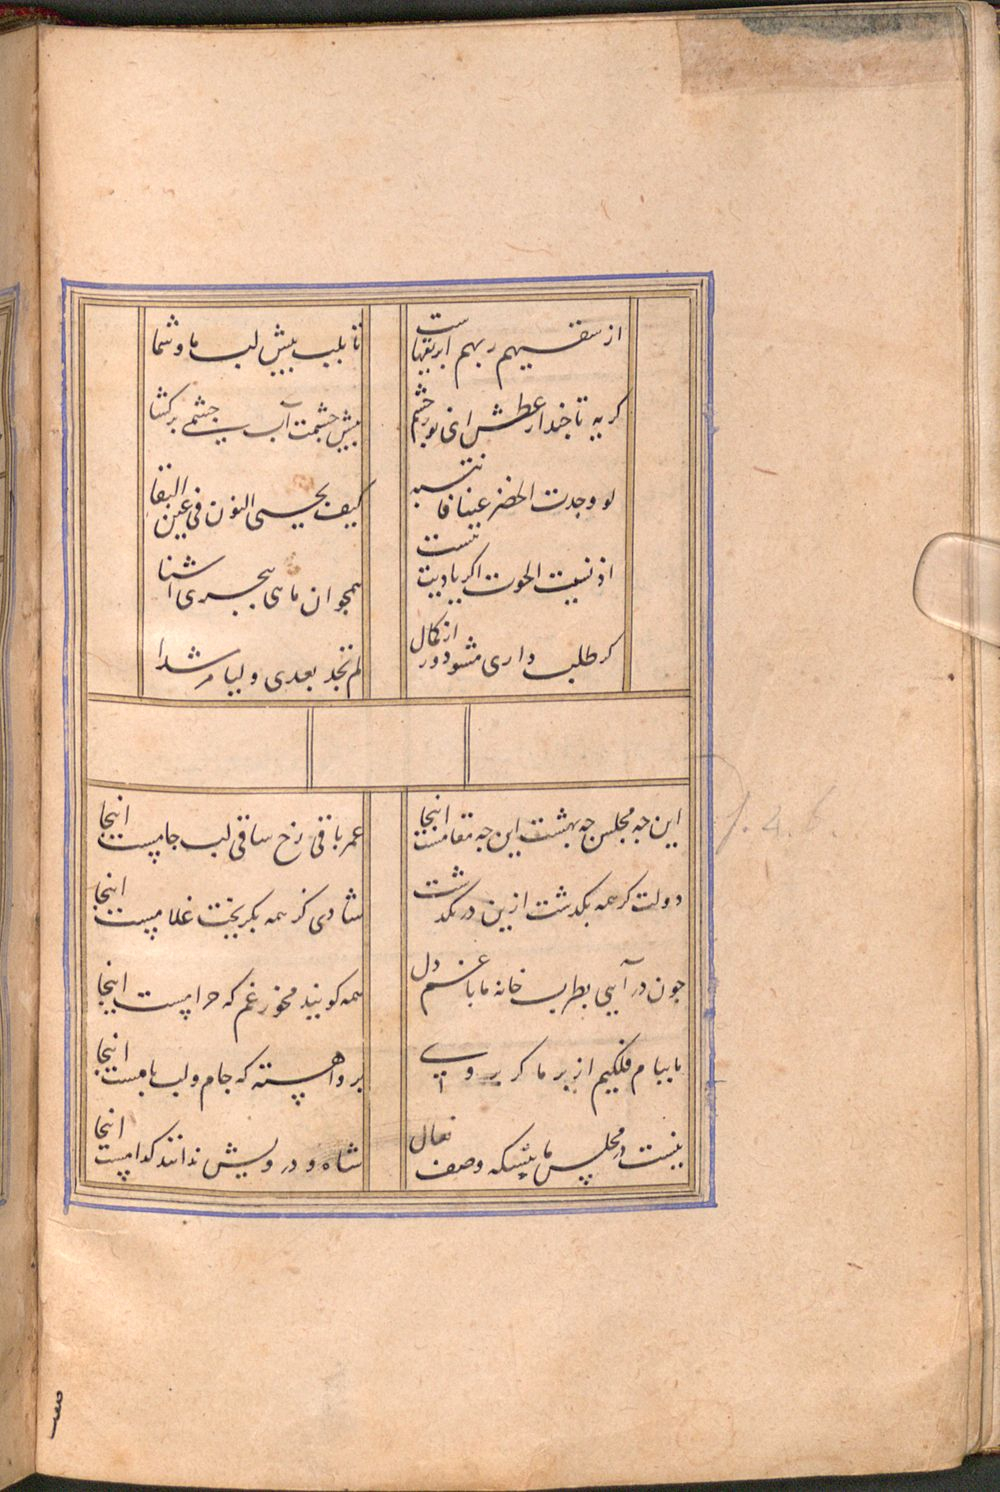 از سقیهم ربهم ابریقهاست
تا بلب پیش لب ما و شما
کر به تا چند از عطش ای نور چشم
پیش چشمت آب چشمی برکشا
لو وجدت الخضر عینا فانتسبه
کیف یحیی النون فی عین البقا
اذ نسیت الحوت اکر یادیت نیست
همچو ان ماهی ببحری اشنا
کر طلب داری مشو دور از کمال
لم تجد بعدی ولیا مرشدا
این چه مجلس چه بهشت این چه مقامست اینجا
عمر باقی رخ ساقی لب جامست اینجا
دولت کز همه بکذشت ازین در نکذشت
شادی کز همه بکریخت غلامست اینجا
چون در آیی بطرب خانه ما با غم دل
همه کویند مخور غم که حرامست اینجا
ما ببام فلکیم از بر ما کر بروی
برو آهسته که جام و لب بامست اینجا
نیست در مجلس ما پیشکه وصف نعال
شاه و درویش ندانند کدامست اینجا
f. 4. b.